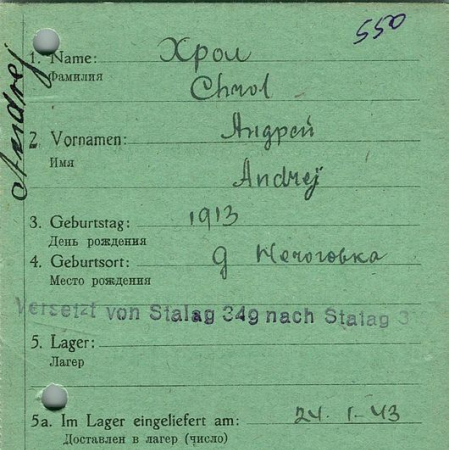 550
Andrej
1. Name: Хрол
Фамилия
Chrol
2. Vornamen: Андрей
Имя
Andrej
3. Geburtstag: 1913
День рождения
4. Geburtsort: д
Место рождения
Versetzt von Stalag 349 nach Stalag
5. Lager:
Лагер
5a. Im Lager eingeliefert am: 24. 1-43
Доставлен в лагер (число)